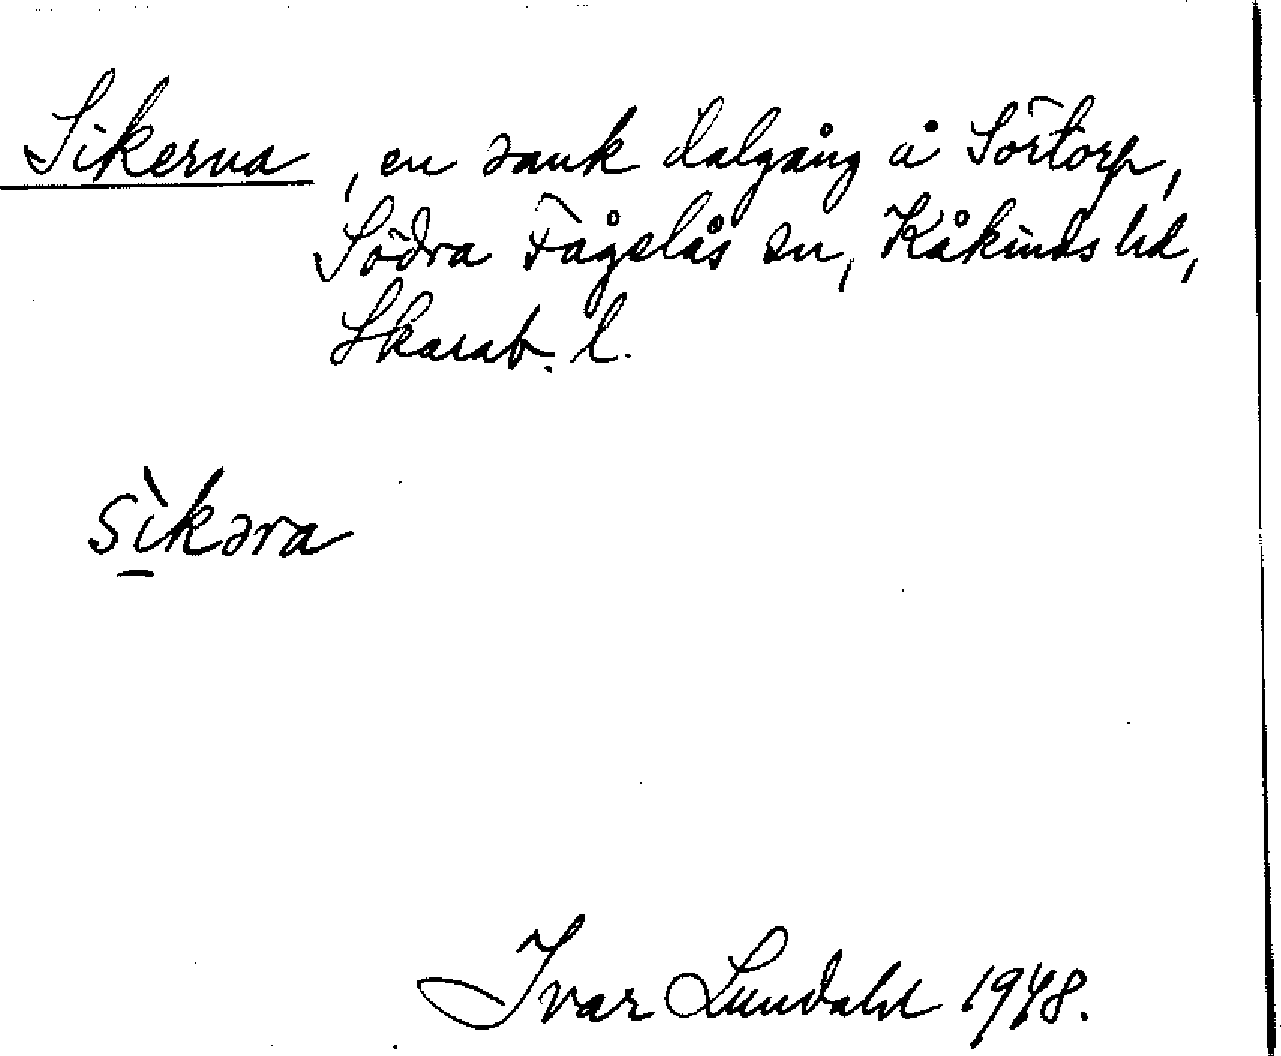 Sikerna, en sank dalgång å Sörtorp,
Södra Fågelås sn, Kåkinds hd,
Skarab. l.
sìkəra
Ivar Lundahl 1948.